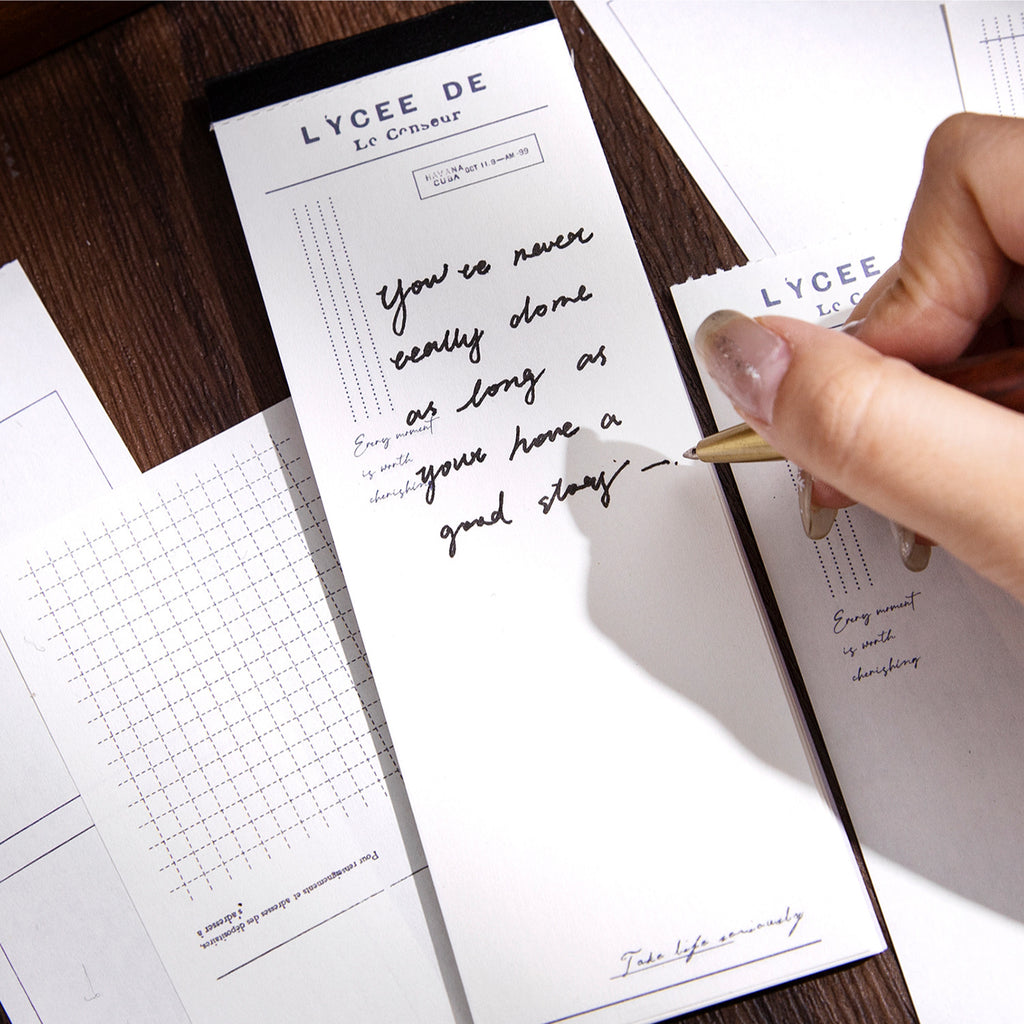 LYCEE DE
Le Censeur
HAVANA
CUBA OCT 11.9—AM -99
You've never
really done
as long as
your have a
good story —.
Every moment
is worth
cherishing
Take life seriously
LYCEE
Le C
Every moment
is worth
cherishing
Pour renseignements et adresses des dépositaires,
s'adresser à